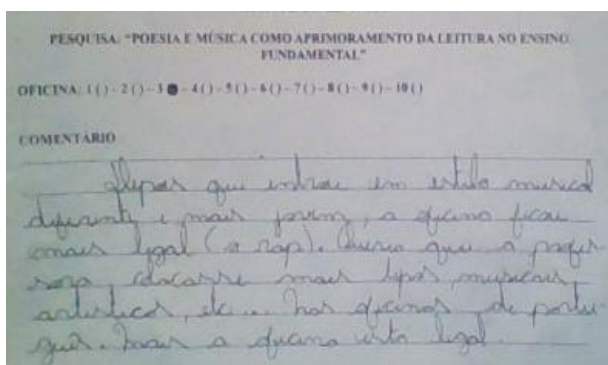 PESQUISA: "POESIA E MÚSICA COMO APRIMORAMENTO DA LEITURA NO ENSINO
FUNDAMENTAL"
OFICINA: 1 ( ) - 2 ( ) - 3 ● - 4 ( ) - 5 ( ) - 6 ( ) - 7 ( ) - 8 ( ) - 9 ( ) - 10 ( )
COMENTÁRIO
que entrou um estilo musical
diferente e mais jovem, a oficina ficou
mais legal (o rap). Queria que a profes
sora, colocasse mais tipos musicais,
artísticos, etc... nas oficinas de portu-
guês. mais a oficina esta legal.